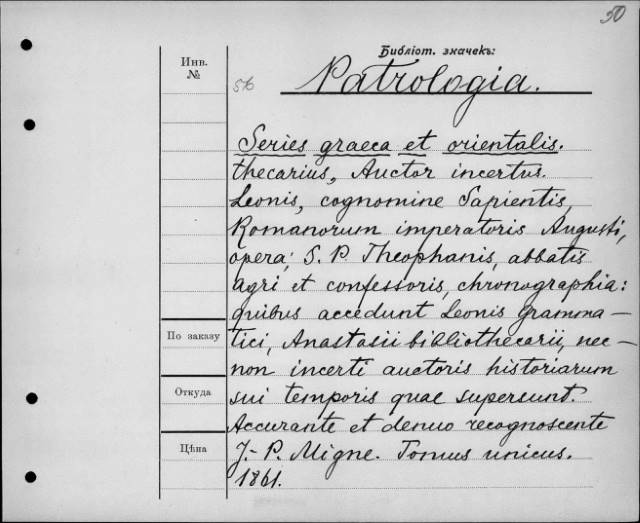 50
Библіот. значекъ:
Инв.
№
56
Patrologia.
Series graeca et orientalis.
thecarius, Auctor incertus.
Leonis, cognomine Sapientis,
Romanorum imperatoris Augusti,
opera; S. P. Theophanis, abbatis
agri et confessoris, chronographia:
quibus accedunt Leonis gramma-
По заказу
tici, Anastasii bibliothecarii, nec-
non incerti auctoris historiarum
Откуда
sui temporis quae supersunt.
Accurante et denuo recognoscente
Цѣна
J.-P. Migne. Tomus unicus.
1861.